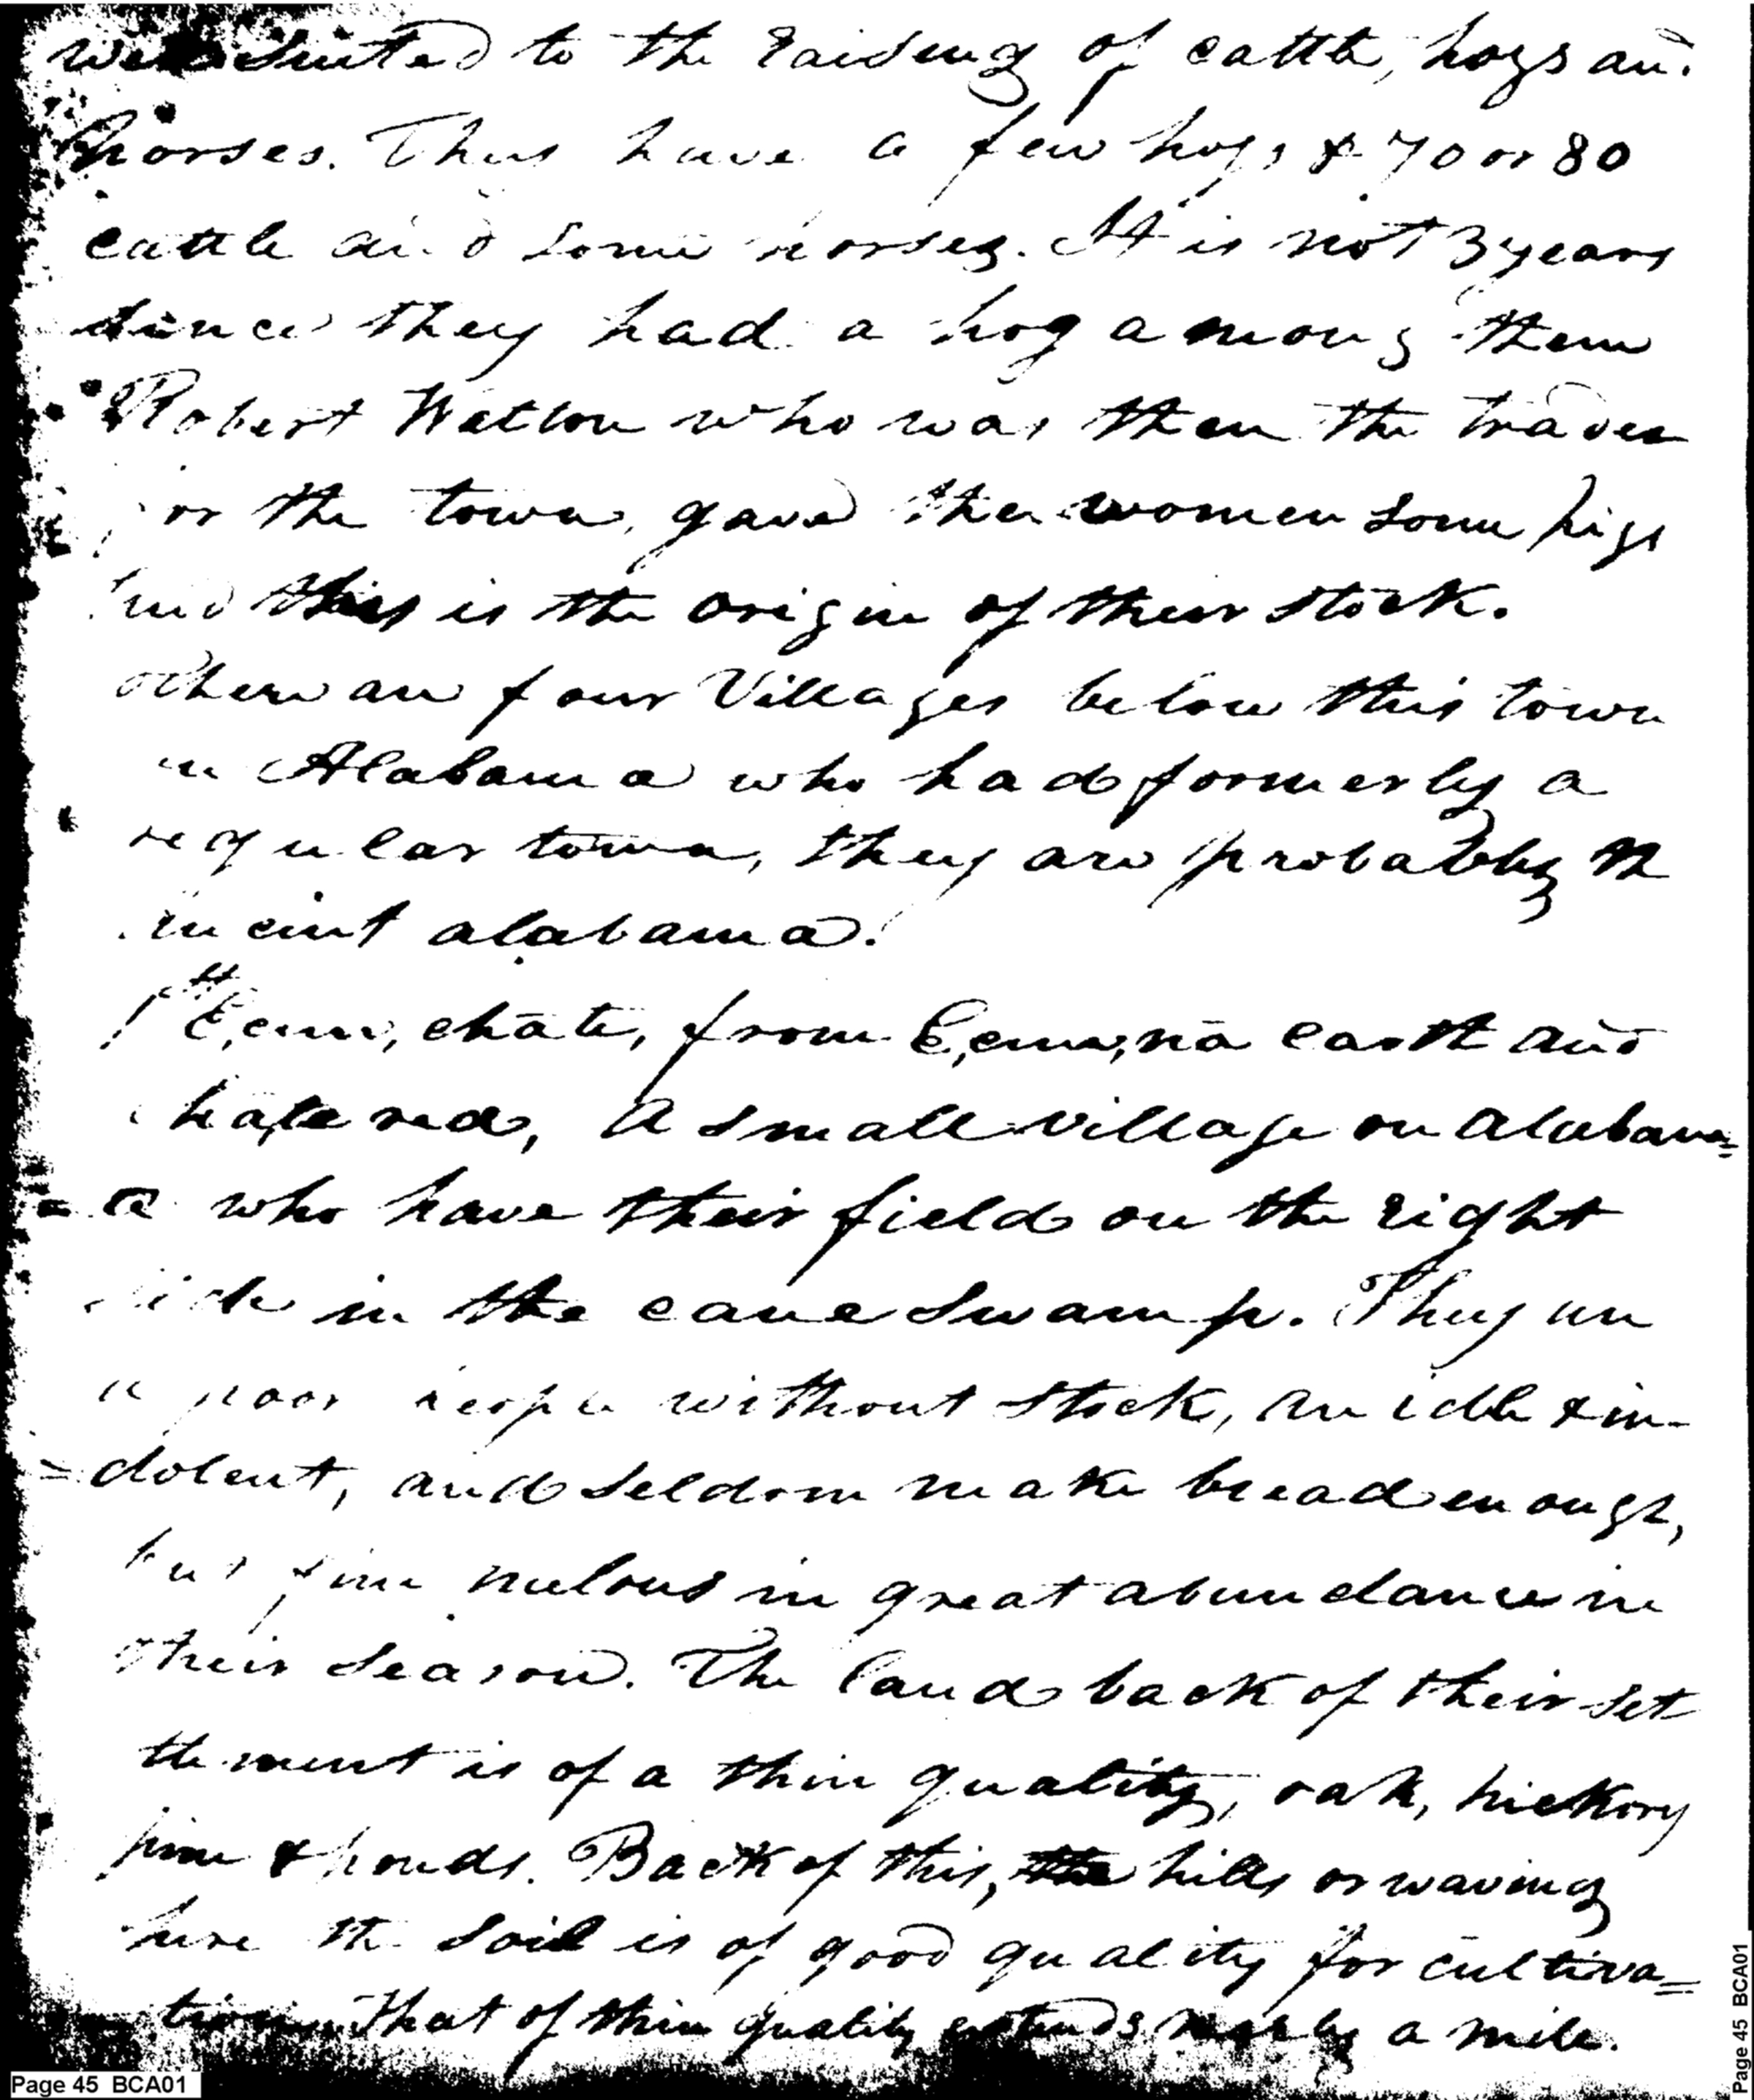 well suited to the raising of cattle, hogs and
horses. Thus have a few hogs & 70 or 80
cattle and some horses. It is not 3 years
since they had a hog among them
Robert Walton who was then the trader
for the town, gave the women some pigs
and this is the origin of their stock.
There are four Villages below this town
in Alabama who had formerly a
regular town, they are probably th
ancient alabama.
1st E,cun, chāte, from E,cun,nā earth and
chāte red, A small village on Alabam=
=a who have their field on the right
side in the cane swamp. They are
a poor people without stock, are idle & in-
=dolent, and seldom make bread enough,
but fine melons in great abundance in
their season. The land back of their set
tlement is of a thin quality, oak, hickory
pine & ponds. Back of this, the hills or waving
here the soil is of good quality for cultiva=
tion. That of thin quality extends nearly a mile.
Page 45 BCA01
Page 45 BCA01